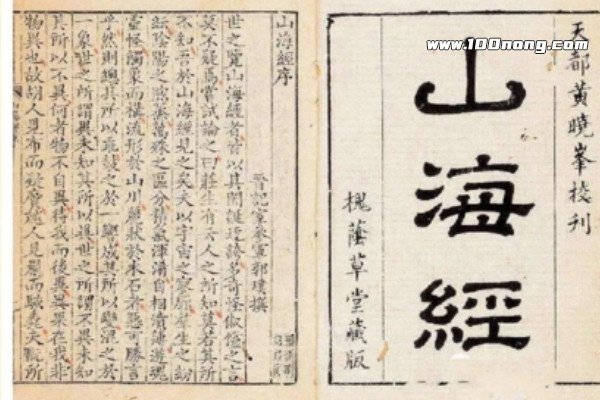 www.100nong.com
天都黄曉峯校刊
山海經
槐蔭草堂藏版
山海經序
晉記室參軍郭璞撰
世之覽山海經者皆以其閎誕迂誇多奇怪俶儻之言
莫不疑焉嘗試論之曰莊生有云人之所知莫若其所
不知吾於山海經見之矣夫以宇宙之寥廓羣生之紛
紜陰陽之煦蒸萬殊之區分精氣渾淆自相濆薄遊魂
靈怪觸象而構流形於山川麗狀於木石者惡可勝言
乎然則總其所以乖鼓之於一響成其所以變混之於
一象世之所謂異未知其所以異世之所謂不異未知
其所以不異何者物不自異待我而後異異果在我非
物異也故胡人見布而疑黂越人見罽而駭毳夫翫所